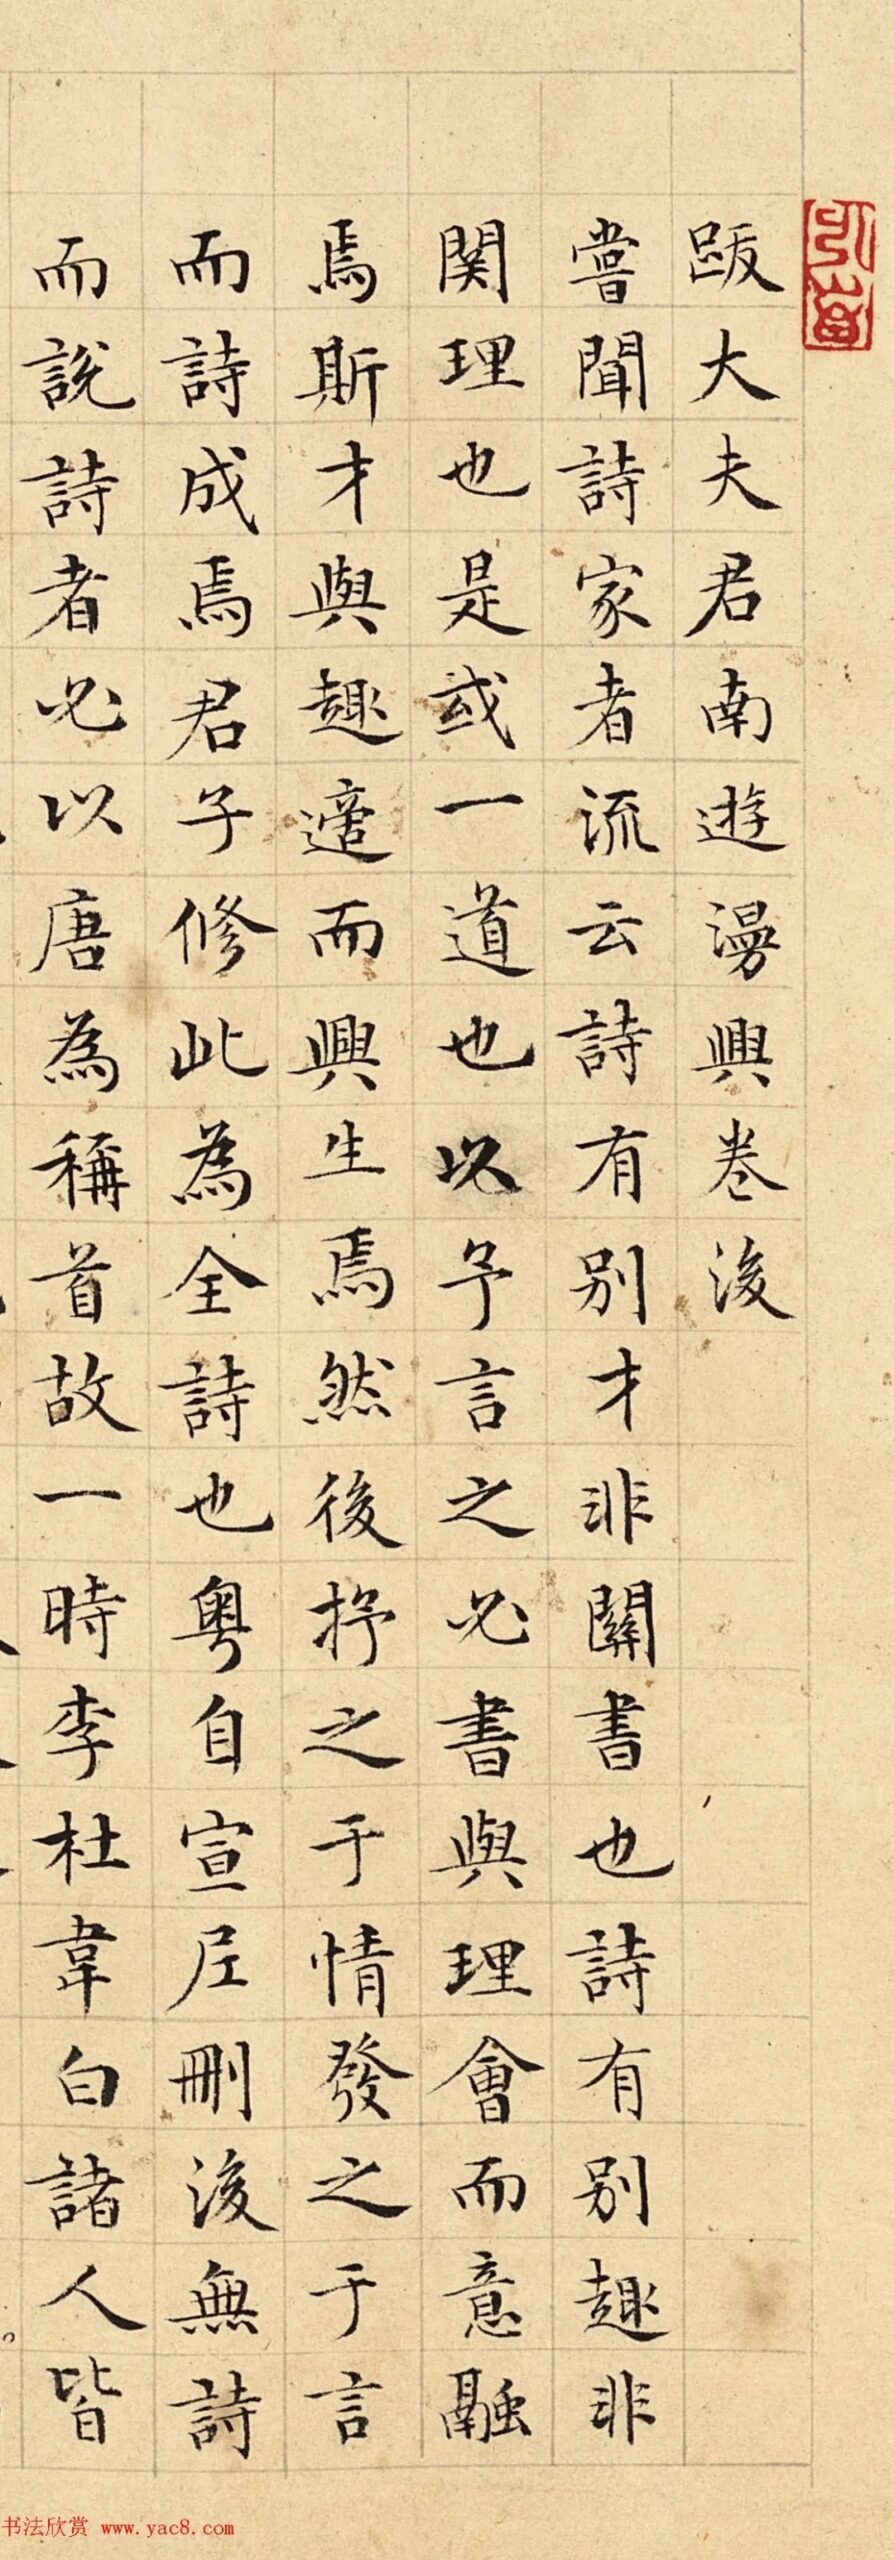 跋大夫君南遊漫興卷後
嘗聞詩家者流云詩有別才非關書也詩有別趣非
関理也是或一道也以予言之必書與理會而意融
焉斯才與趣適而興生焉然後抒之于情發之于言
而詩成焉君子修此為全詩也粵自宣尼刪後無詩
而說詩者必以唐為稱首故一時李杜韋白諸人皆
书法欣赏 www.yac8.com